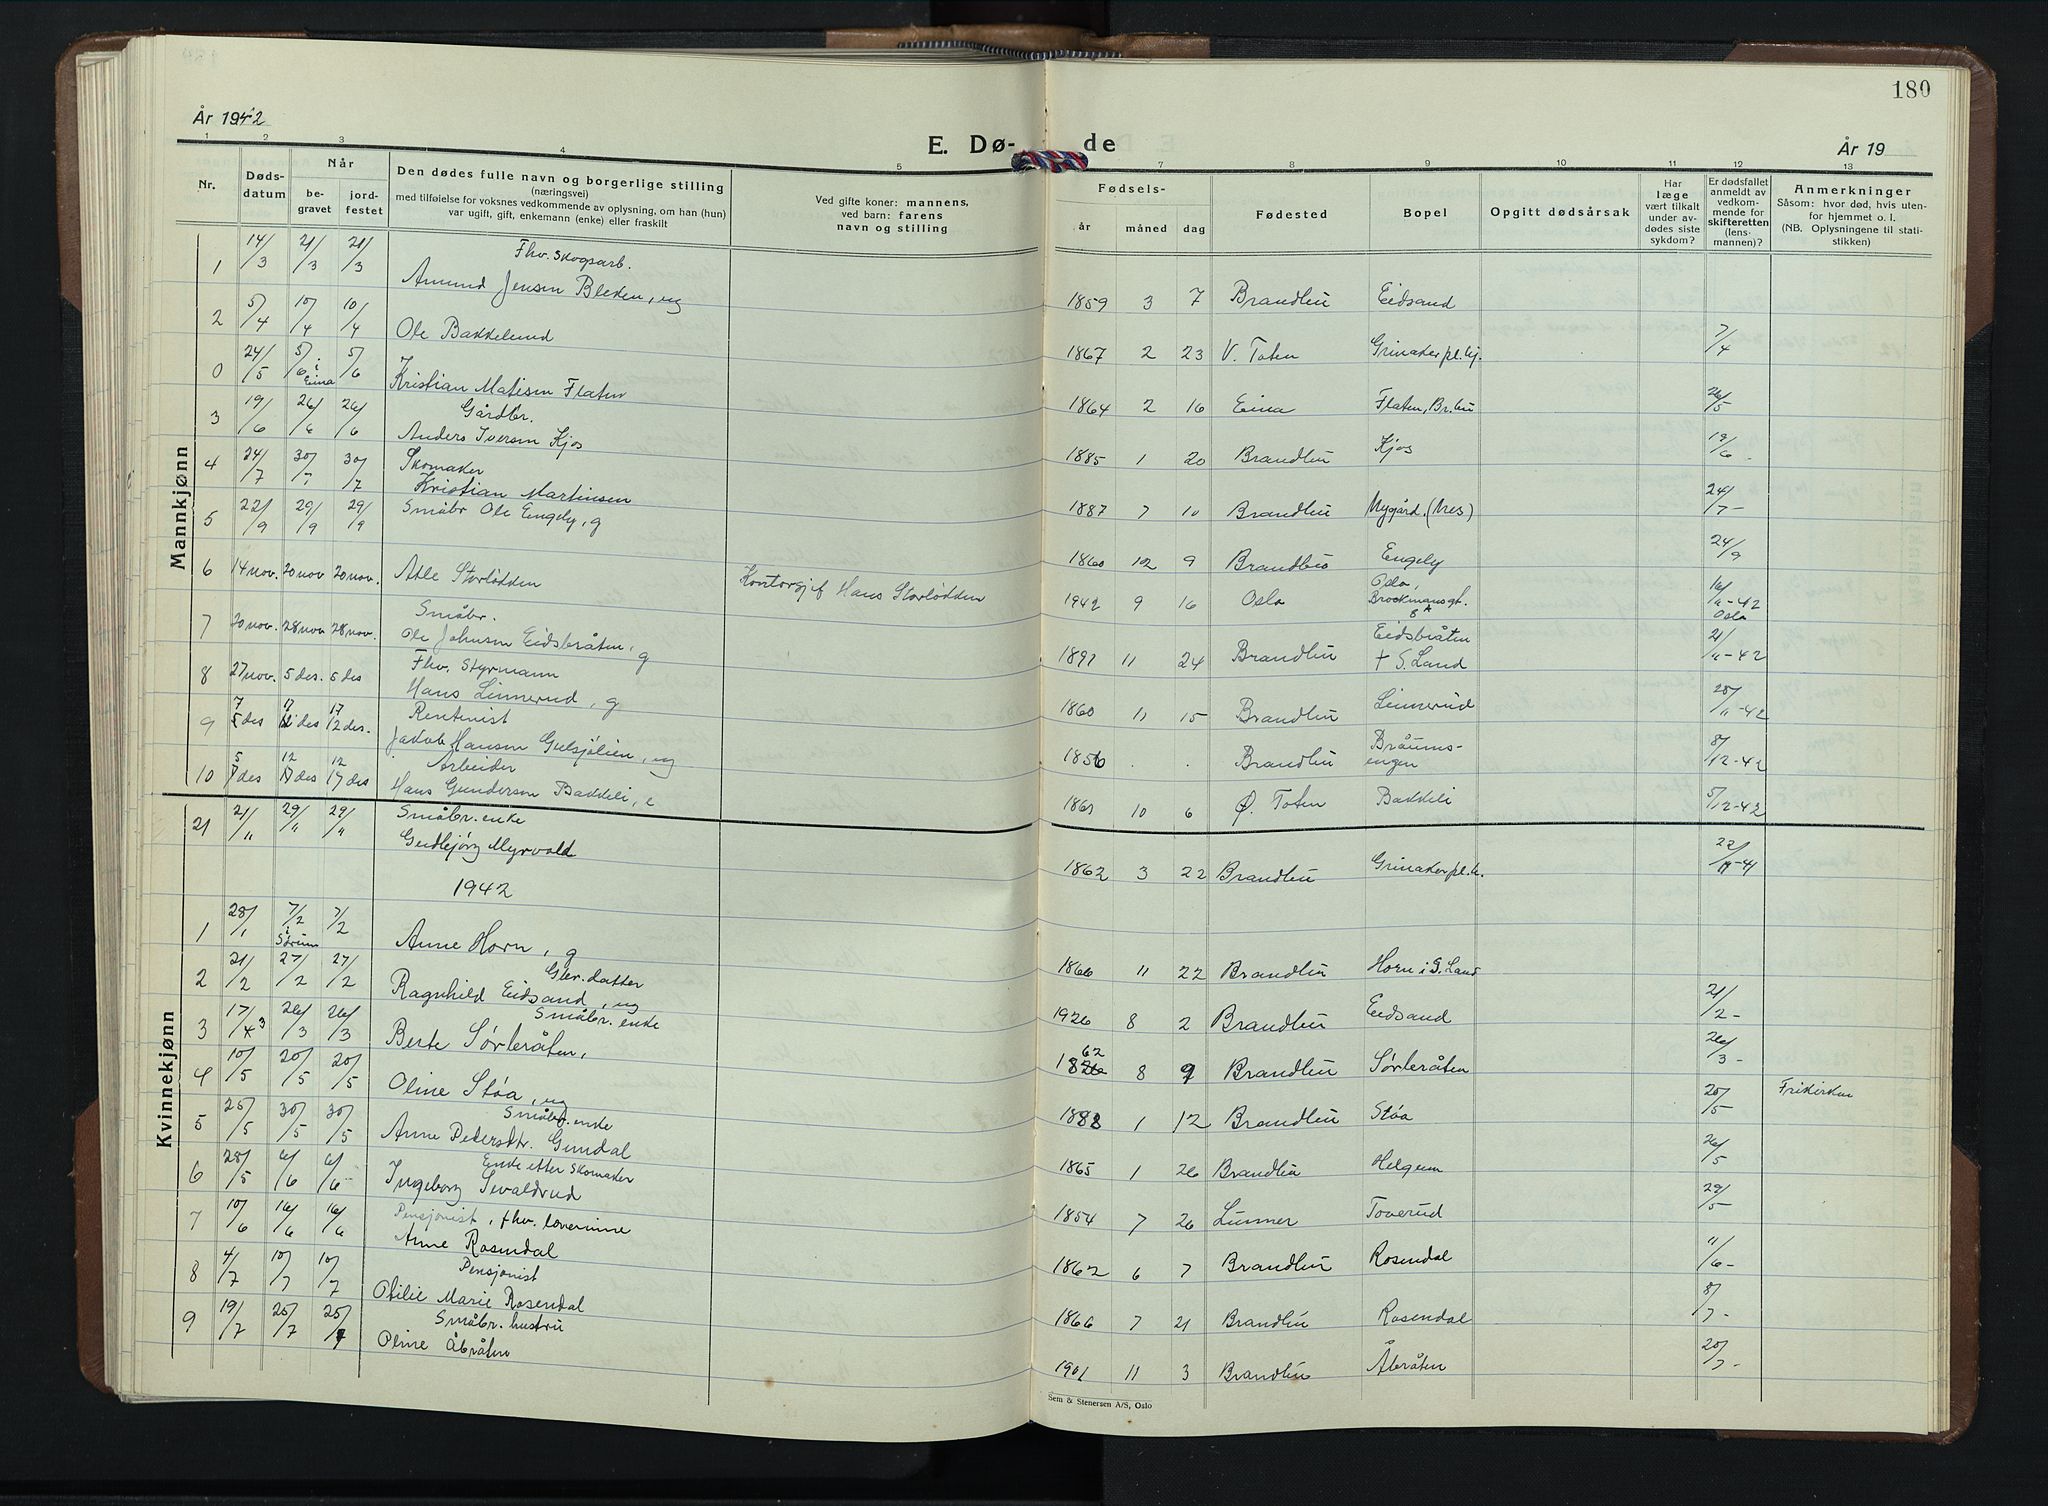 180
År 1942
E. Dø- de
År 19
1 2 3 4 5 7 8 9 10 11 12 13
Nr.
Døds-
datum
Når
be-
gravet
jord-
festet
Den dødes fulle navn og borgerlige stilling
(næringsvei)
med tilføielse for voksnes vedkommende av oplysning, om han (hun)
var ugift, gift, enkemann (enke) eller fraskilt
Ved gifte koner: mannens,
ved barn: farens
navn og stilling
Fødsels-
år måned dag
Fødested
Bopel
Opgitt dødsårsak
Har
læge
vært tilkalt
under av-
dødes siste
sykdom?
Er dødsfallet
anmeldt av
vedkom-
mende for
skifteretten
(lens-
mannen)?
Anmerkninger
Såsom: hvor død, hvis uten-
for hjemmet o. l.
(NB. Oplysningene til stati-
stikken)
Mannkjønn
Fhv. skogsarb.
1 14/3 21/3 21/3 Amund Jensen Bleken, ug 1859 3 7 Brandbu Eidsand
2 5/4 10/4 10/4 Ole Bakkelund 1867 2 23 V. Toten Grinaker pl.hj. 7/4
0 24/5 5/6 i Eina 5/6 Kristian Matisen Flaten 1864 2 16 Eina Flaten, Br.bu 26/5
Gårdbr.
3 19/6 26/6 26/6 Anders Iversen Kjos 1885 1 20 Brandbu Kjos 19/6 -
Skomaker
4 24/7 30/7 30/7 Kristian Martinsen 1887 7 10 Brandbu Nygård. (Nes) 24/7 -
5 22/9 29/9 29/9 Småbr Ole Engely, g 1860 12 9 Brandbu Engely 24/9
6 14 nov. 20 nov 20 nov. Atle Storlødden Kontorsjef Hans Storlødden 1942 9 16 Oslo Oslo, Brockmansgt. 8 A 16/11-42 Oslo
Småbr.
7 20 nov. 28 nov 28 nov. Ole Johnsen Eidsbråten, g 1891 11 24 Brandbu Eidsbråten + S. Land 21/11-42
Fhv. styrmann
8 27 nov. 5 des. 5 des Hans Linnerud, g 1860 11 15 Brandbu Linnerud 28/11-42
Rentenist
9 7 des 17 des 17 des. Jakob Hansen Gulsjølien, ug 1856 . . Brandbu Bråums- engen 8/12-42
Arbeider
10 5 des 12 des 12 des Hans Gundersen Bakkeli, e 1861 10 6 Ø. Toten Bakkeli 5/12-42
Kvinnekjønn
Småbr. enke
21 21/11 29/11 29/11 Gudbjørg Myrvold 1862 3 22 Brandbu Grinaker pl.h. 22/11-41
1942
1 28/1 7/2 i Sørum 7/2 Anne Horn, g 1866 11 22 Brandbu Horn i S. Land
Gbr. datter
2 21/2 27/2 27/2 Ragnhild Eidsand, ug 1926 8 2 Brandbu Eidsand 21/2 -
Småbr. enke
3 17/3 26/3 26/3 Berte Sørbråten, 1862 8 9 Brandbu Sørbråten 26/3 -
4 10/5 20/5 20/5 Oline Støa, ug 1888 1 12 Brandbu Støa 20/5 Frikirken
Småbr. enke
5 25/5 30/5 30/5 Anne Pedersdtr. Gundal 1865 1 26 Brandbu Helgum 26/5
Enke etter skomaker
6 28/5 6/6 6/6 - Ingeborg Sevaldrud 1854 7 26 Lunner Toverud 29/5
Pensjonist, fhv. lærerinne
7 10/6 16/6 16/6 Anne Rosendal 1862 6 7 Brandbu Rosendal 11/6 -
Pensjonist
8 4/7 10/7 10/7 Otilie Marie Rosendal 1866 7 21 Brandbu Rosendal 8/7 -
Småbr. hustru
9 19/7 25/7 25/7 Oline Åbråten 1901 11 3 Brandbu Åbråten 20/7 -
Sem & Stenersen A/S, Oslo